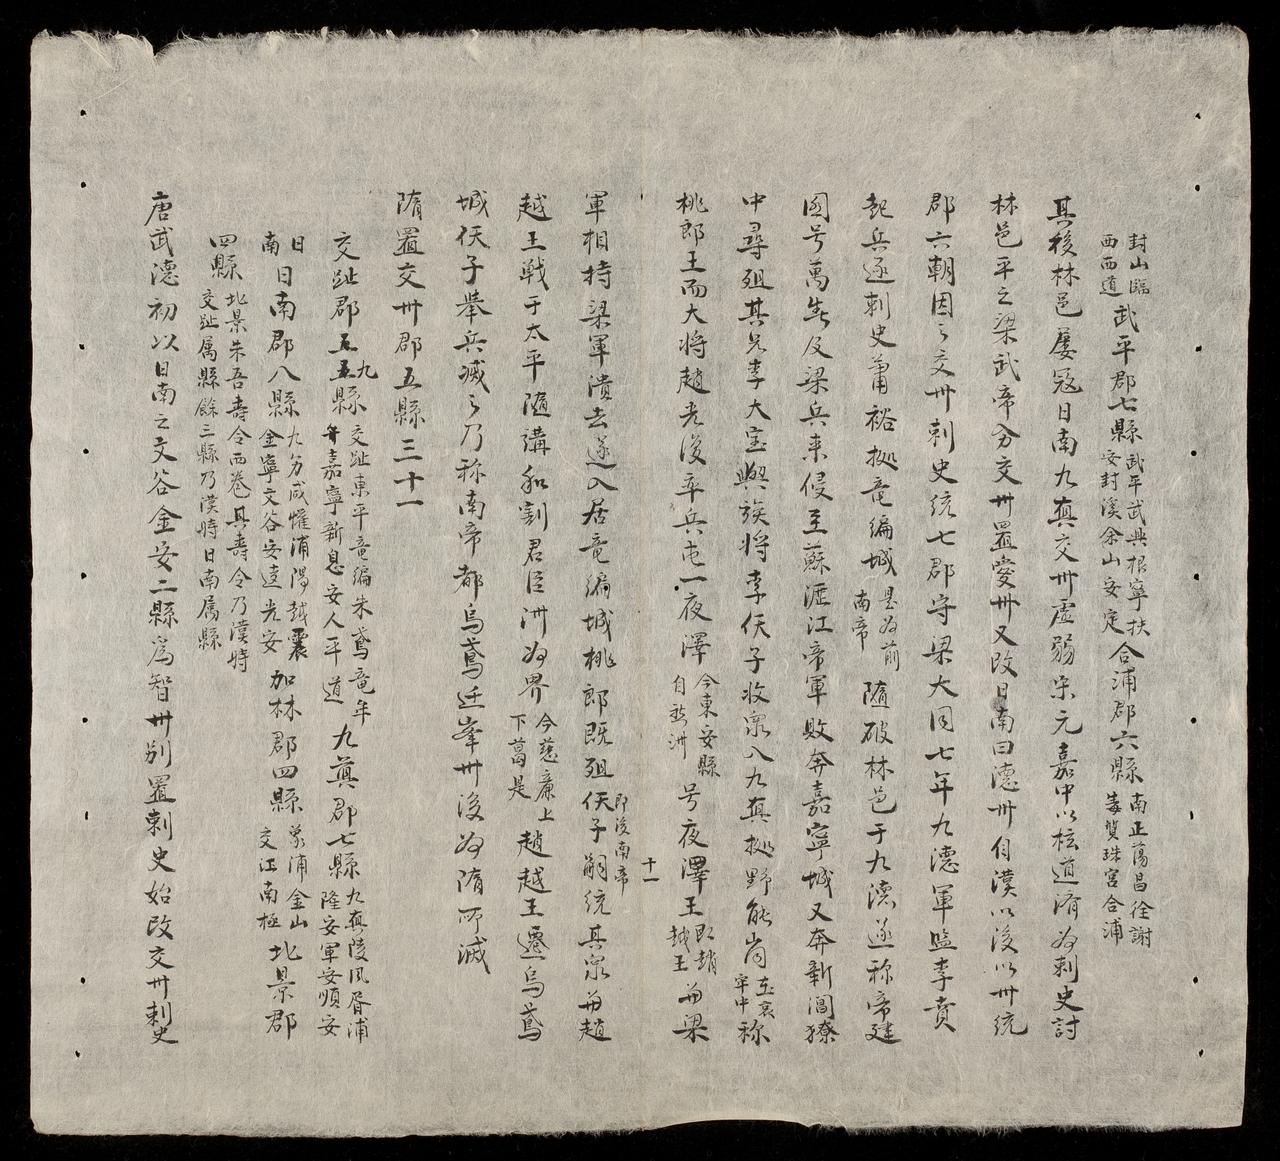 封山臨
西西道
武平郡七縣
武平武興根寧扶
安封溪余山安定
合浦郡六縣
南正蕩昌徐謝
毒質珠宮合浦
其後林邑屢寇日南九真交州虛弱宋元嘉中以桓道濟為刺史討
林邑平之梁武帝分交州置愛州又改日南曰德州自漢以後以州統
郡六朝因之交州刺史統七郡守梁大同七年九德軍監李賁
起兵逐刺史蕭裕拠竜編城
是為前
南帝
隨破林邑于九德遂称帝建
国号萬春及梁兵来侵至蘇瀝江帝軍敗奔嘉寧城又奔新昌獠
中尋殂其兄李大宝與族将李仸子收衆入九真拠野能峝
在哀
牢中
称
桃郎王而大将趙光復率兵屯一夜澤
今東安縣
自然洲
号夜澤王
即趙
越王
与梁
十一
軍相持梁軍潰去遂入居竜編城桃郎既殂仸子
即後南帝
嗣統其衆与趙
越王戦于太平隨講和割君臣洲為界
今慈廉上
下葛是
趙越王遷烏鳶
城仸子挙兵滅之乃称南帝都烏鳶迁峯州後為隋所滅
隋置交州郡五縣三十一
交趾郡九縣
交趾東平竜編朱鳶竜年
并嘉寧新息安人平道
九真郡七縣
九真陵風胥浦
隆安軍安順安
日
南
日南郡八縣
九分咸懽浦陽越裳
金寧文谷安遠光安
加林郡四縣
象浦金山
交江南極
北景郡
四縣
北景朱吾壽令西巻其壽令乃漢時
交趾属縣餘三縣乃漢時日南属縣
唐武德初以日南之文谷金安二縣為智州別置刺史始改交州刺史